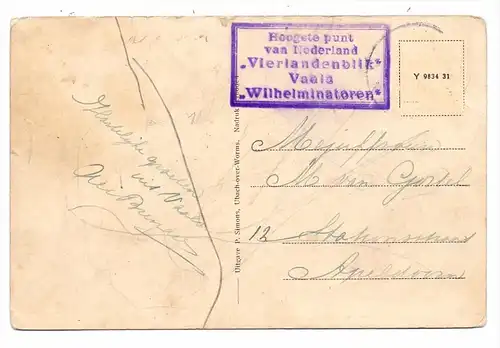 Hoogste punt
van Nederland
„Vierlandenblik"
Vaals
„Wilhelminatoren"
Y 9834 31
Hartelijke groeten
uit Vaals
Uitgave P. Simons, Ubach-over-Worms. Nadruk
M van
12 Stationsstraat
Apeldoorn